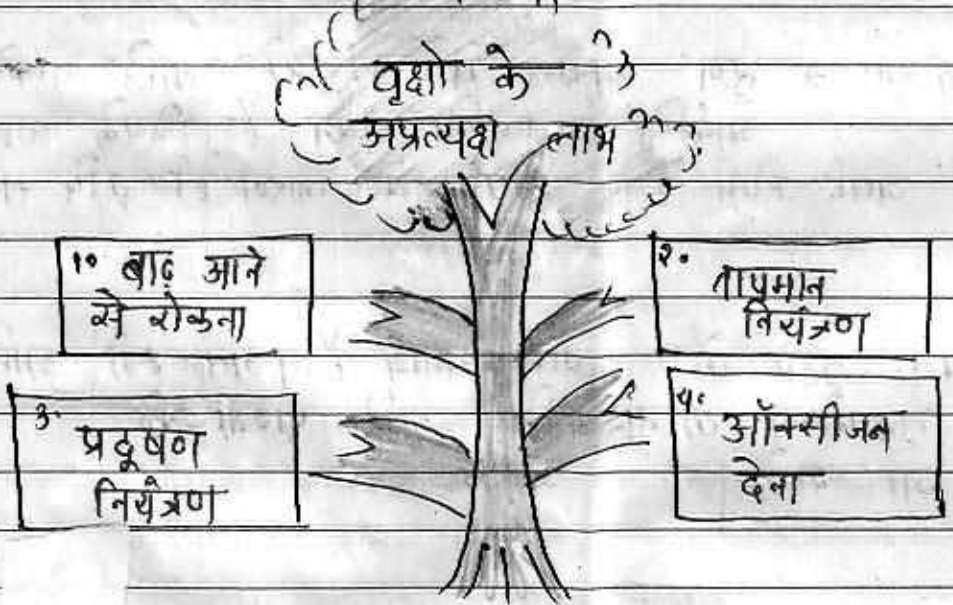 वृक्षो के
अप्रत्यक्ष लाभ
1. बाढ़ आने
से रोकना
२.
तापमान
नियंत्रण
3.
प्रदूषण
नियंत्रण
४.
ऑक्सीजन
देना